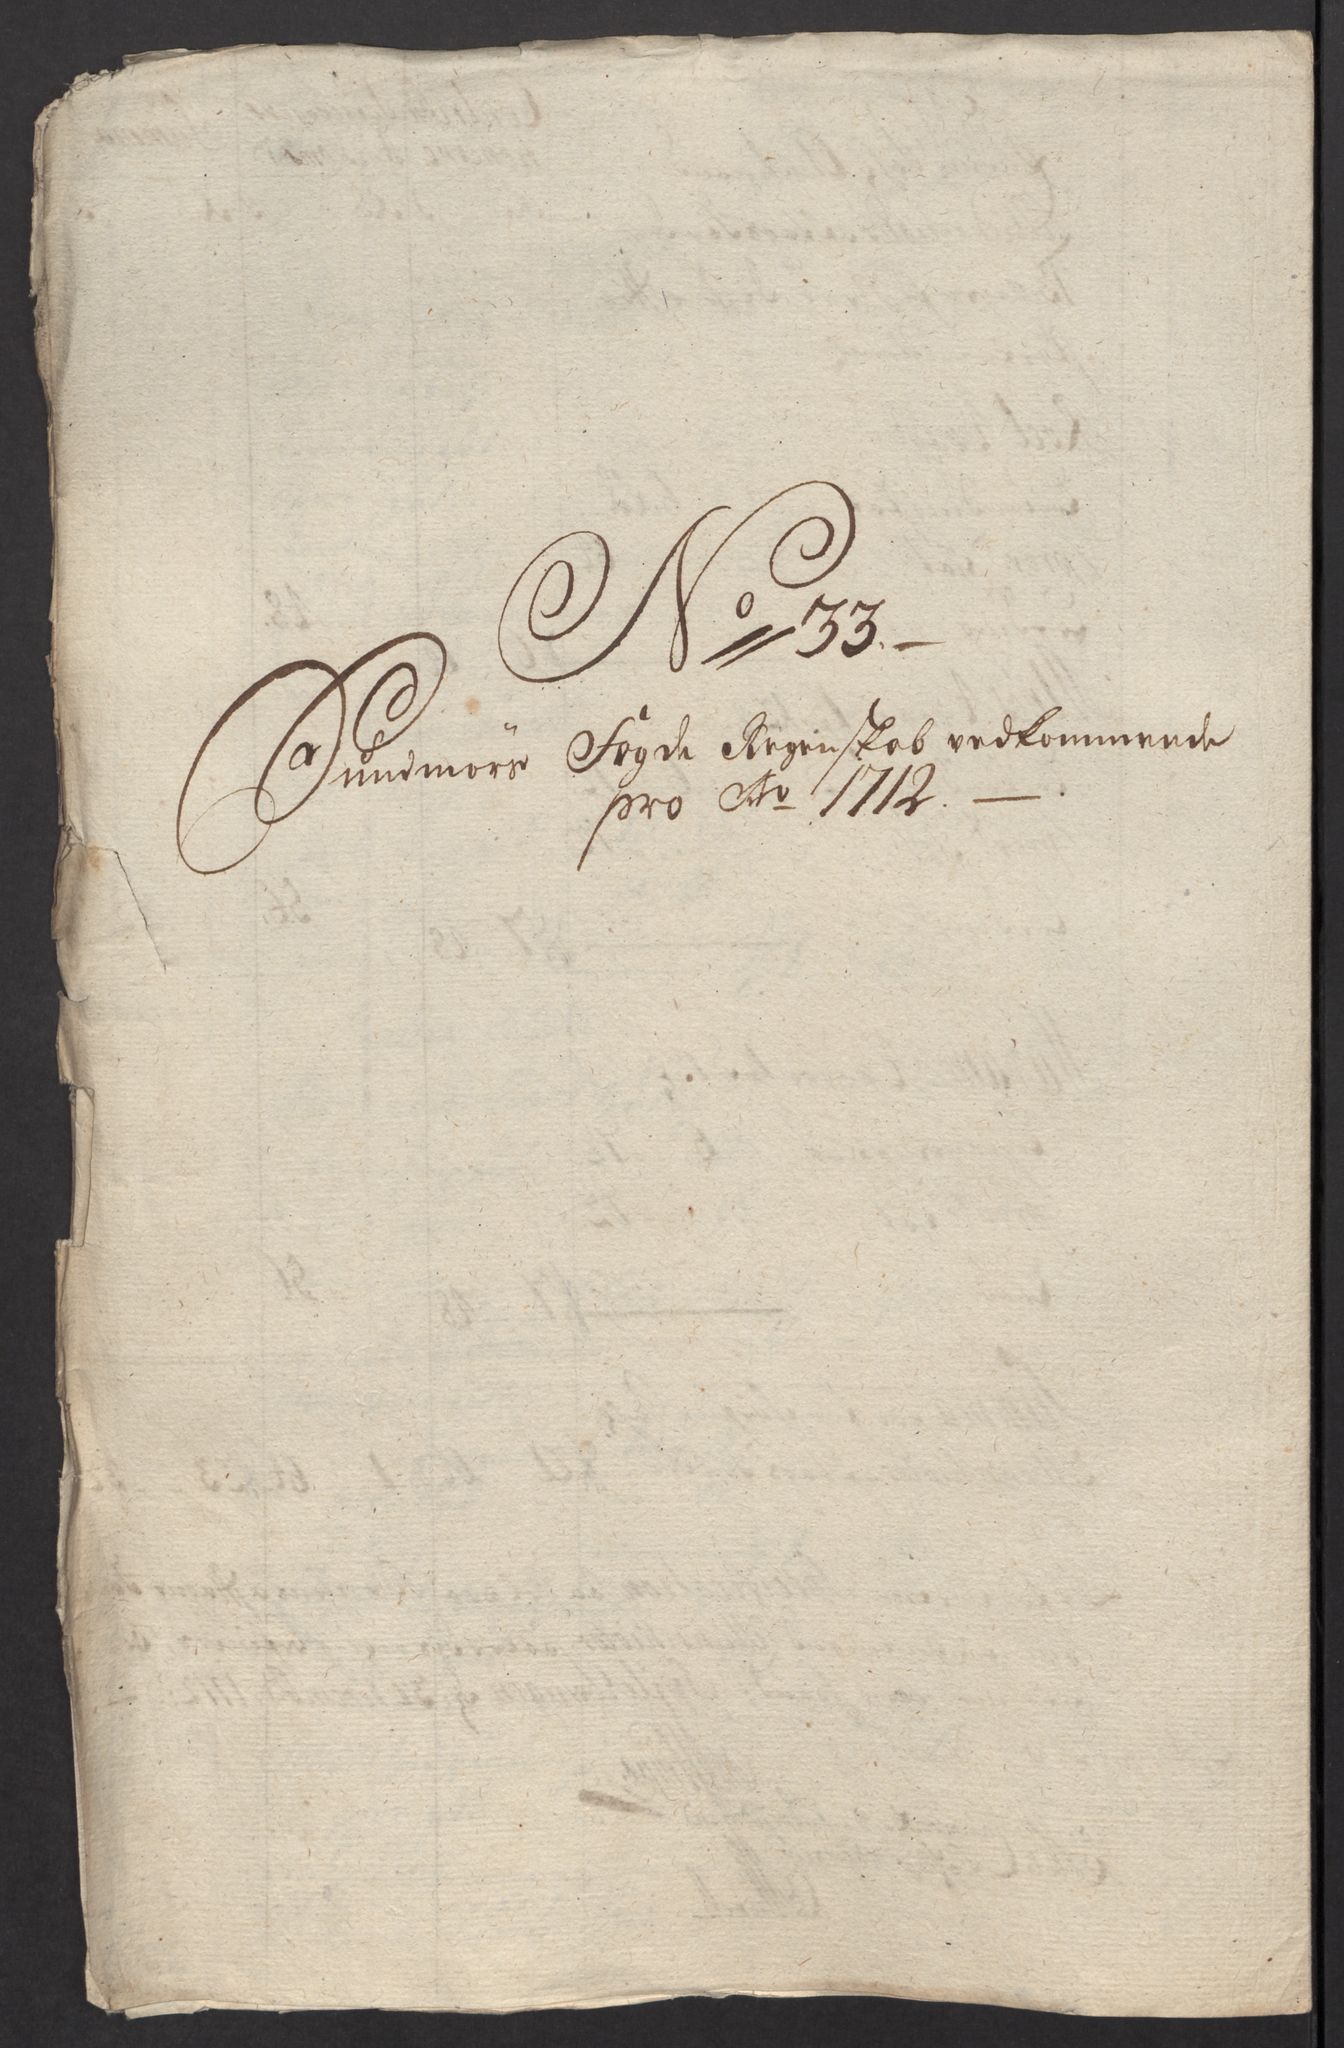 No 33.
Sundmörs Fogde Regenskab vedkommende
pro Ao 1712.